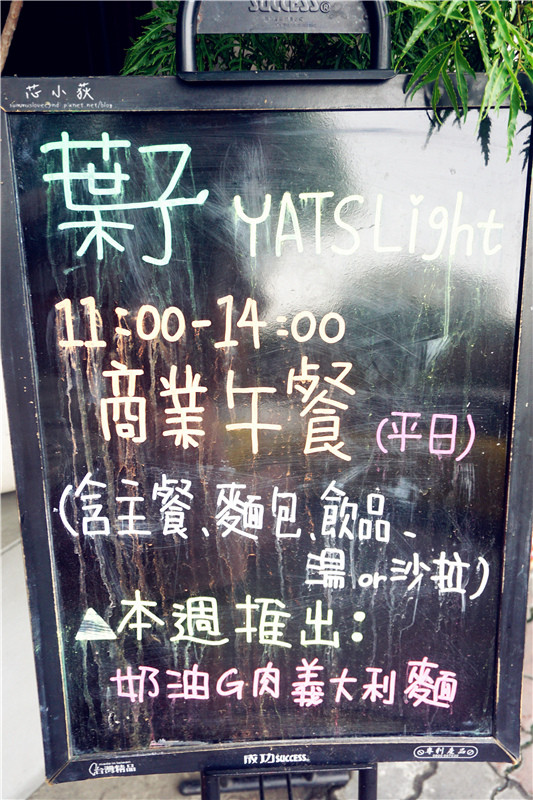 SUCCESS®
芯小荻
葉子 YATSLight
11:00-14:00
商業午餐 (平日)
(含主餐、麵包、飲品、
湯or沙拉)
▲本週推出:
奶油G肉義大利麵
台灣精品
成功SUCCESS®
專利產品